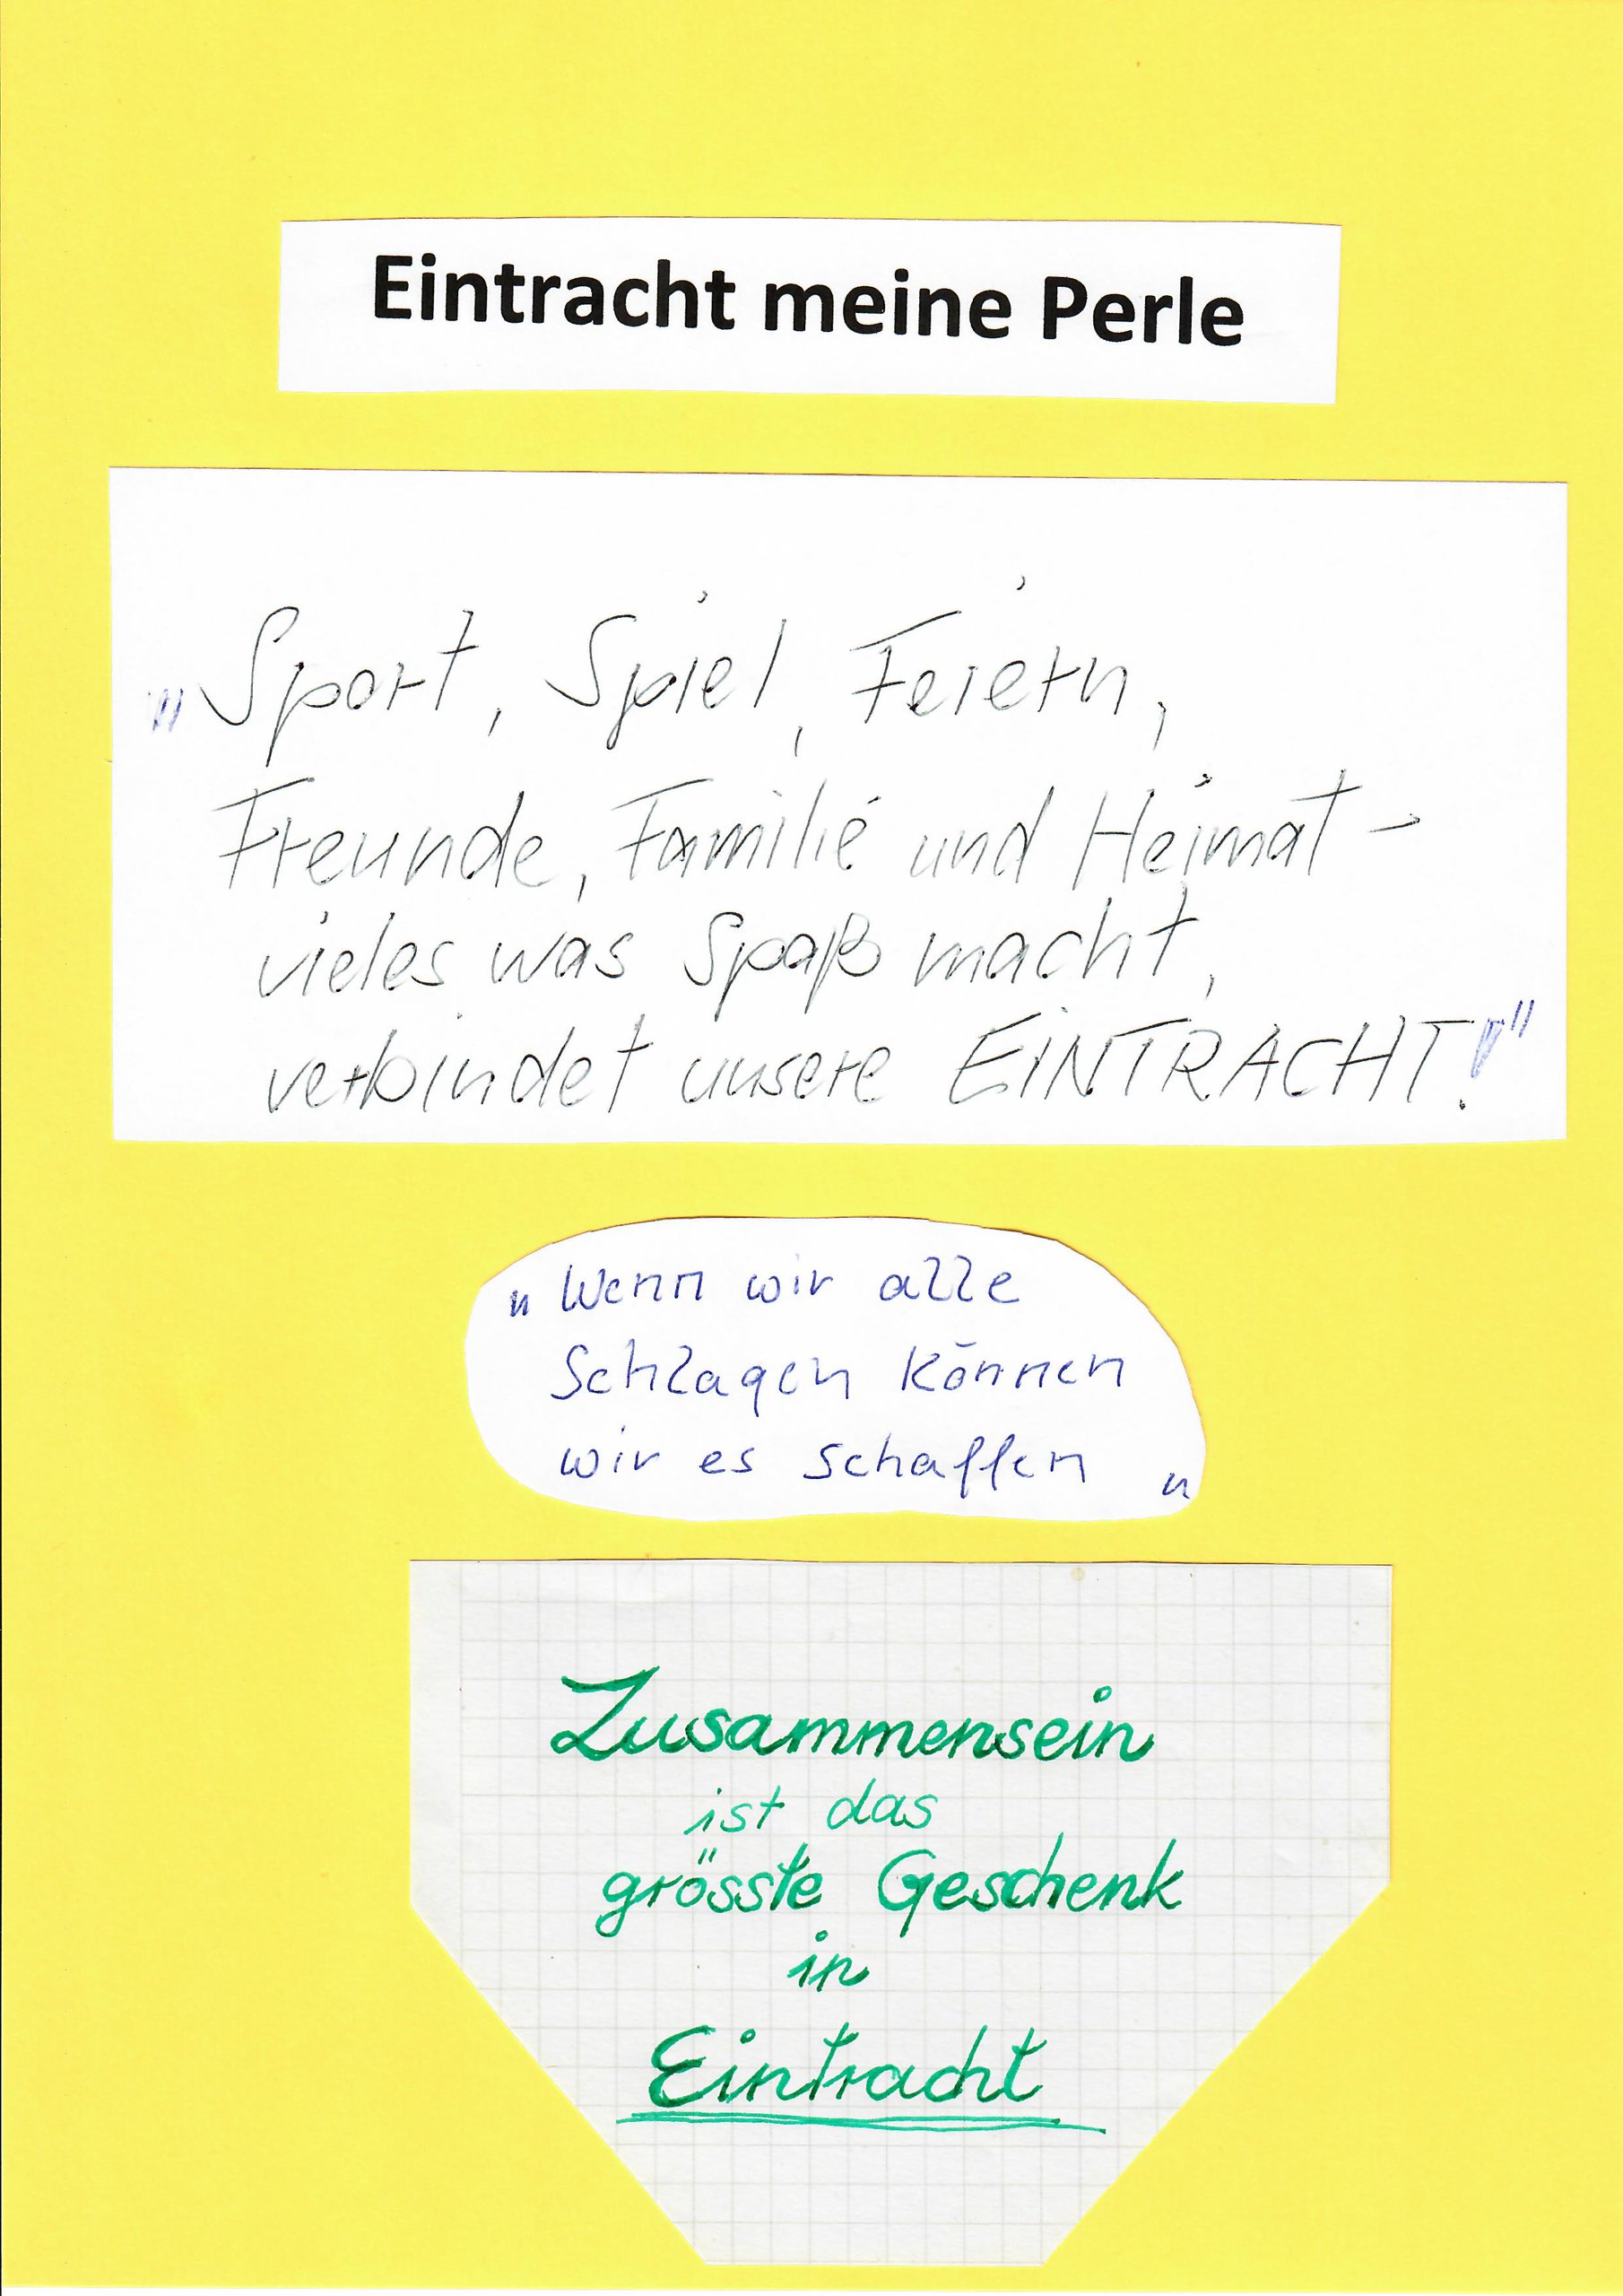 Eintracht meine Perle
„Sport, Spiel, Feiern,
Freunde, Familie und Heimat -
vieles was Spaß macht,
verbindet unsere EiNTRACHT!"
„Wenn wir alle
Schlagen können
wir es schaffen „
Zusammensein
ist das
grösste Geschenk
in
Eintracht